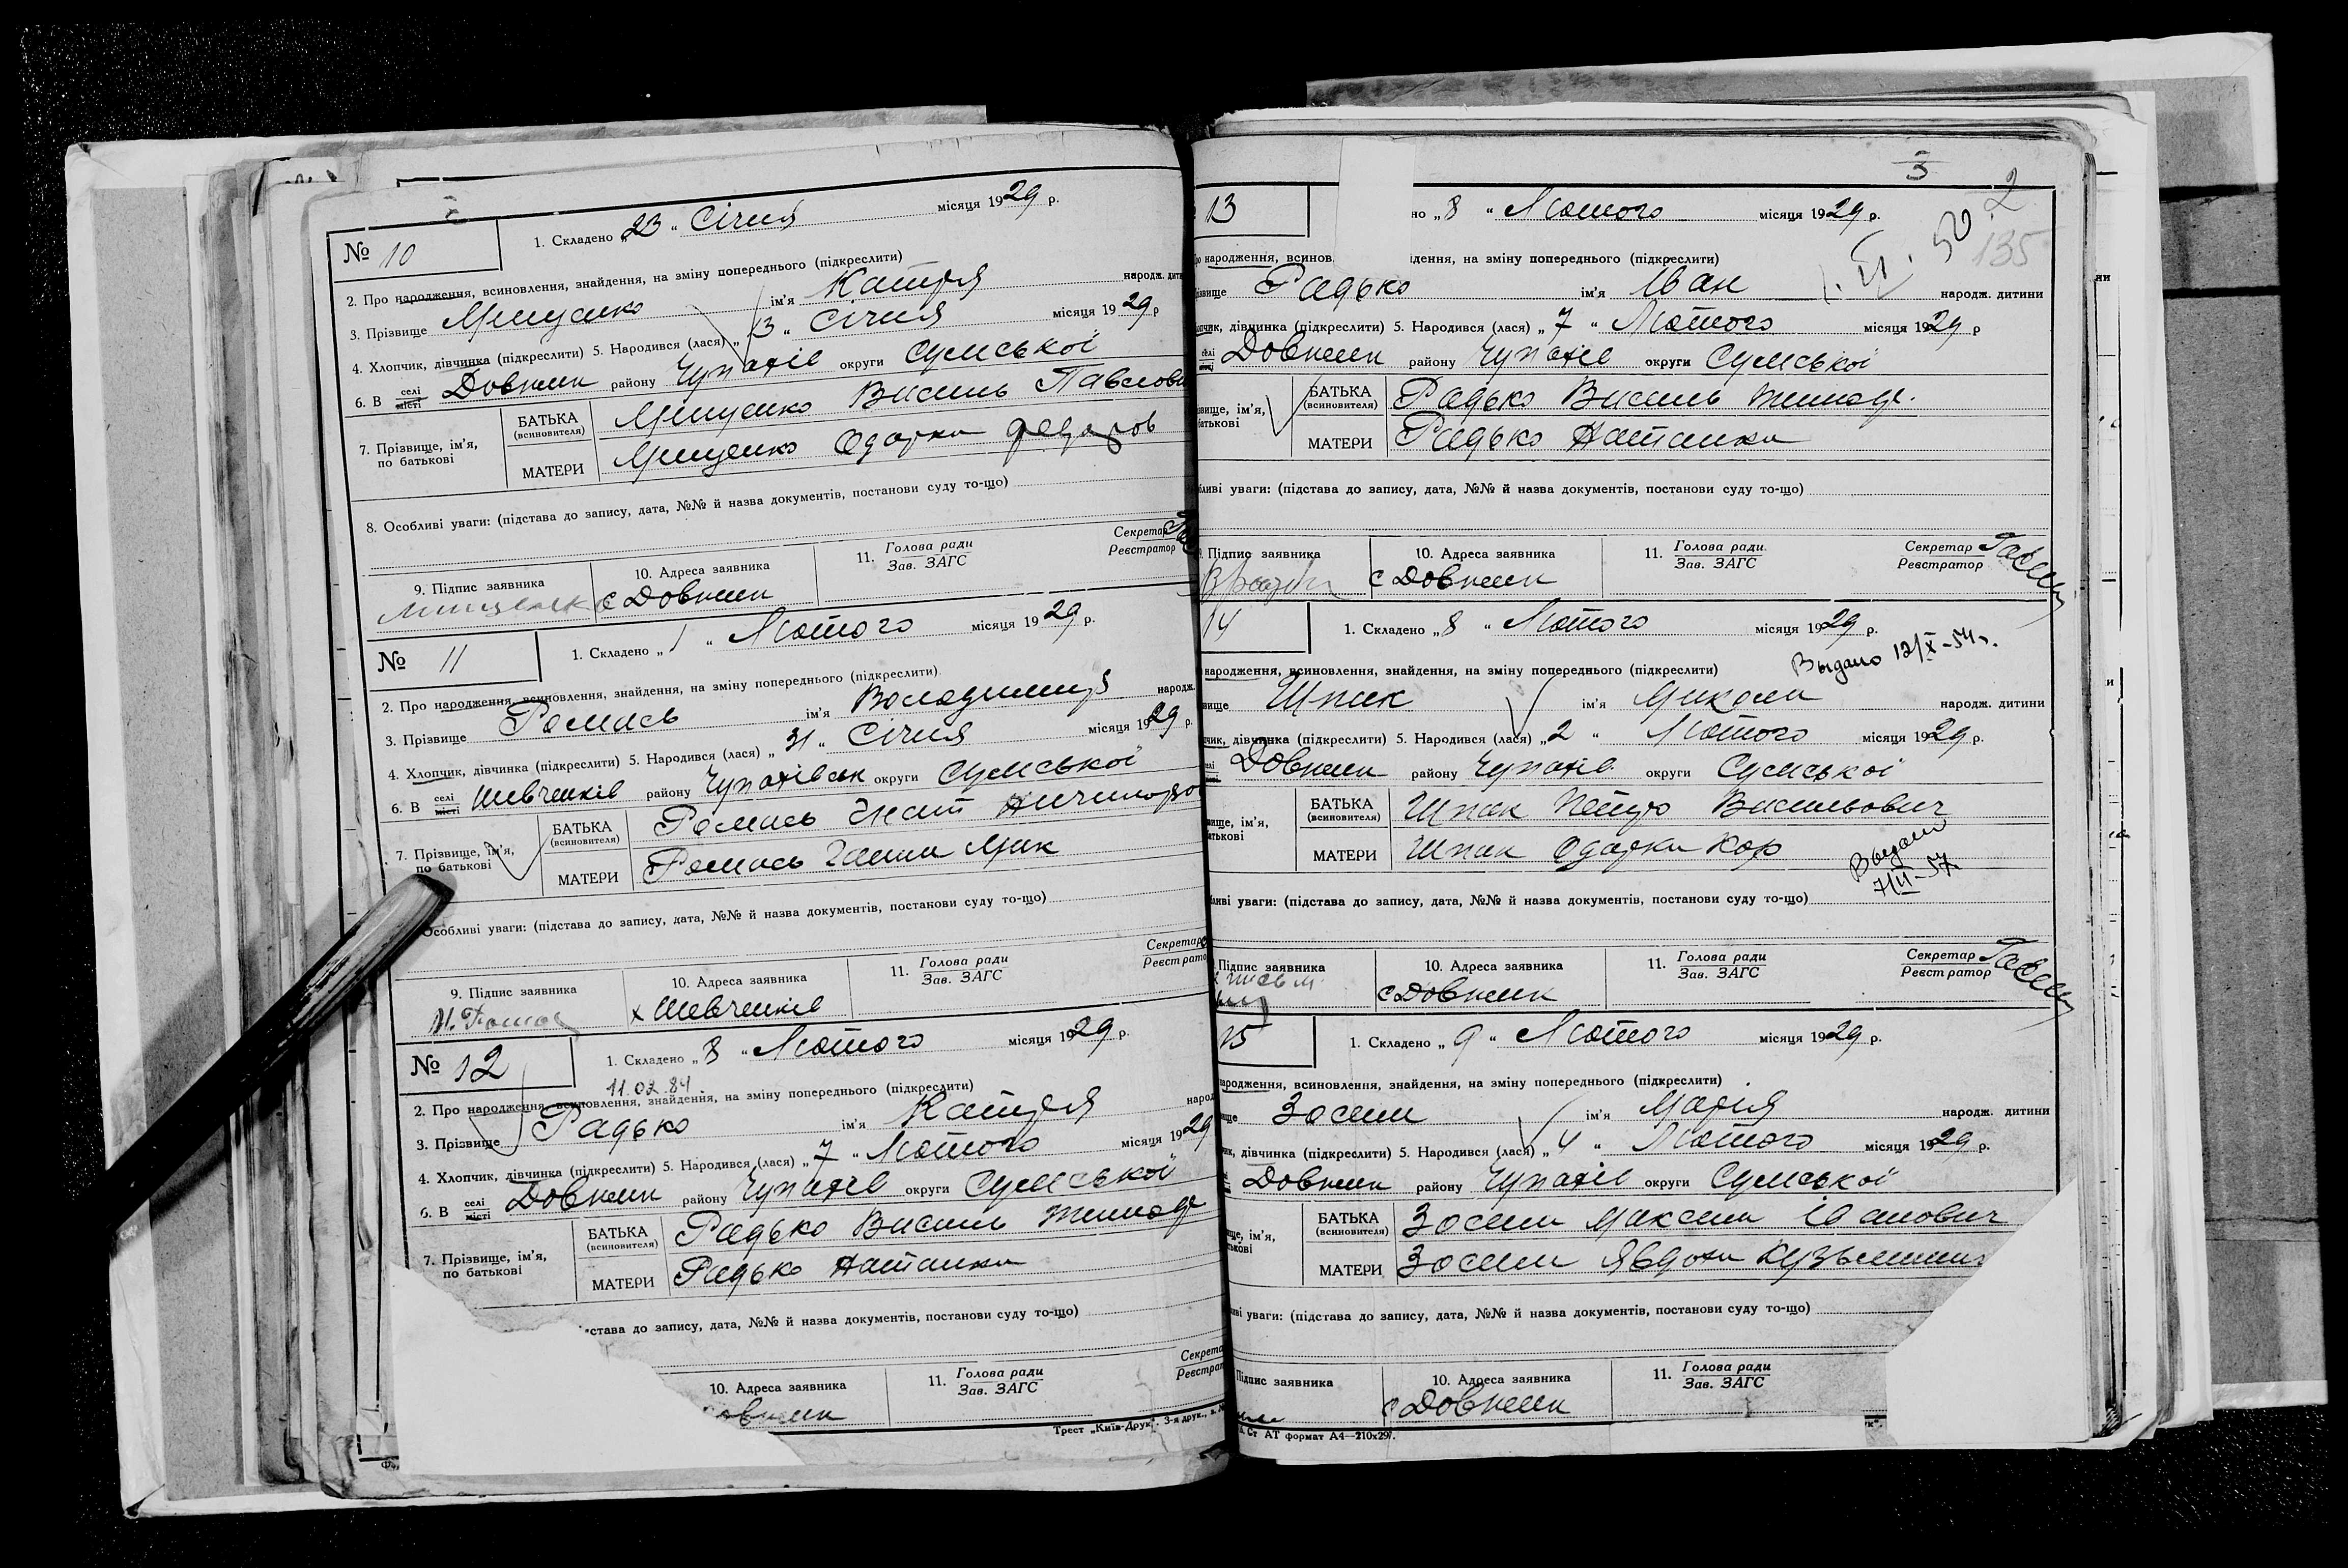 № 10
1. Складено „23“ Січня місяця 1929 р.
2. Про народження, всиновлення, знайдення, на зміну попереднього (підкреслити)
3. Прізвище Мищенко ім'я Катря народж. дити
4. Хлопчик, дівчинка (підкреслити) 5. Народився (лася) „13“ Січня місяця 1929 р
6. В селі місті Довжик району Чупахів округи Сумської
7. Прізвище, ім'я, по батькові
БАТЬКА (всиновителя) Мищенко Василь Павлови
МАТЕРИ Мищенко Одарка Федоров
8. Особливі уваги: (підстава до запису, дата, №№ й назва документів, постанови суду то-що)
9. Підпис заявника 10. Адреса заявника 11. Голова ради Зав. ЗАГС Секретар Реєстратор
с Довжик
№ 11
1. Складено „1“ Лютого місяця 1929 р.
2. Про народження, всиновлення, знайдення, на зміну попереднього (підкреслити)
3. Прізвище Ромась ім'я Володимир народж.
4. Хлопчик, дівчинка (підкреслити) 5. Народився (лася) „31“ Січня місяця 1929 р.
6. В селі місті Шевченків району Чупахівськ округи Сумської
7. Прізвище, ім'я, по батькові
БАТЬКА (всиновителя) Ромась Гнат
МАТЕРИ Ромась Ганна Мик
Особливі уваги: (підстава до запису, дата, №№ й назва документів, постанови суду то-що)
9. Підпис заявника 10. Адреса заявника 11. Голова ради Зав. ЗАГС Секретар Реєстрато
х Шевченків
№ 12
1. Складено „8“ Лютого місяця 1929 р.
11.02.84.
2. Про народження, всиновлення, знайдення, на зміну попереднього (підкреслити)
3. Прізвище Радько ім'я Катря народ
4. Хлопчик, дівчинка (підкреслити) 5. Народився (лася) „7“ Лютого місяця 1929
6. В селі місті Довжик району Чупахів округи Сумської
7. Прізвище, ім'я, по батькові
БАТЬКА (всиновителя) Радько Василь Тимоф
МАТЕРИ Радько Наталка
става до запису, дата, №№ й назва документів, постанови суду то-що)
10. Адреса заявника 11. Голова ради Зав. ЗАГС Секрета Реєстрат
овжик
Трест „Київ-Друк“. 3-я друк.
3
2
135
13
но „8“ Лютого місяця 1929 р.
народження, всинов дення, на зміну попереднього (підкреслити)
ізвище Радько ім'я Іван народж. дитини
пчик, дівчинка (підкреслити) 5. Народився (лася) „7“ Лютого місяця 1929 р
селі місті Довжик району Чупахів округи Сумської
звище, ім'я, батькові
БАТЬКА (всиновителя) Радько Василь Тимоф.
МАТЕРИ Радько Наталка
бливі уваги: (підстава до запису, дата, №№ й назва документів, постанови суду то-що)
Підпис заявника 10. Адреса заявника 11. Голова ради Зав. ЗАГС Секретар Реєстратор
с Довжик
14
1. Складено „8“ Лютого місяця 1929 р.
Выдано 12/X-54г.
народження, всиновлення, знайдення, на зміну попереднього (підкреслити)
вище Шпак ім'я Микола народж. дитини
чик, дівчинка (підкреслити) 5. Народився (лася) „2“ Лютого місяця 1929 р.
Довжик району Чупахів округи Сумської
вище, ім'я, атькові
БАТЬКА (всиновителя) Шпак Петро Васильович
МАТЕРИ Шпак Одарка Кор
Выдано
7/II-57
ливі уваги: (підстава до запису, дата, №№ й назва документів, постанови суду то-що)
Підпис заявника 10. Адреса заявника 11. Голова ради Зав. ЗАГС Секретар Реєстратор
с Довжик
15
1. Складено „9“ Лютого місяця 1929 р.
ародження, всиновлення, знайдення, на зміну попереднього (підкреслити)
ище Зосим ім'я Марія народж. дитини
ик, дівчинка (підкреслити) 5. Народився (лася) „4“ Лютого місяця 1929 р.
Довжик району Чупахів округи Сумської
ще, ім'я, тькові
БАТЬКА (всиновителя) Зосим Максим Іванович
МАТЕРИ Зосим Явдоха
ві уваги: (підстава до запису, дата, №№ й назва документів, постанови суду то-що)
Підпис заявника 10. Адреса заявника 11. Голова ради Зав. ЗАГС
с Довжик
Ст АТ формат А4—210х297.